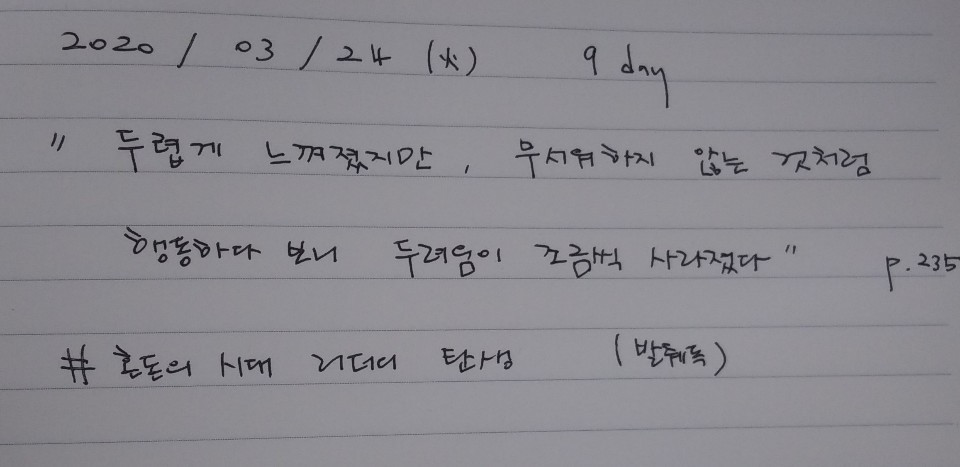 2020 / 03 / 24 (火) 9 day
" 두렵게 느껴졌지만, 무서워하지 않는 것처럼
행동하다 보니 두려움이 조금씩 사라졌다" p.235
# 혼돈의 시대 리더의 탄생 (발췌독)